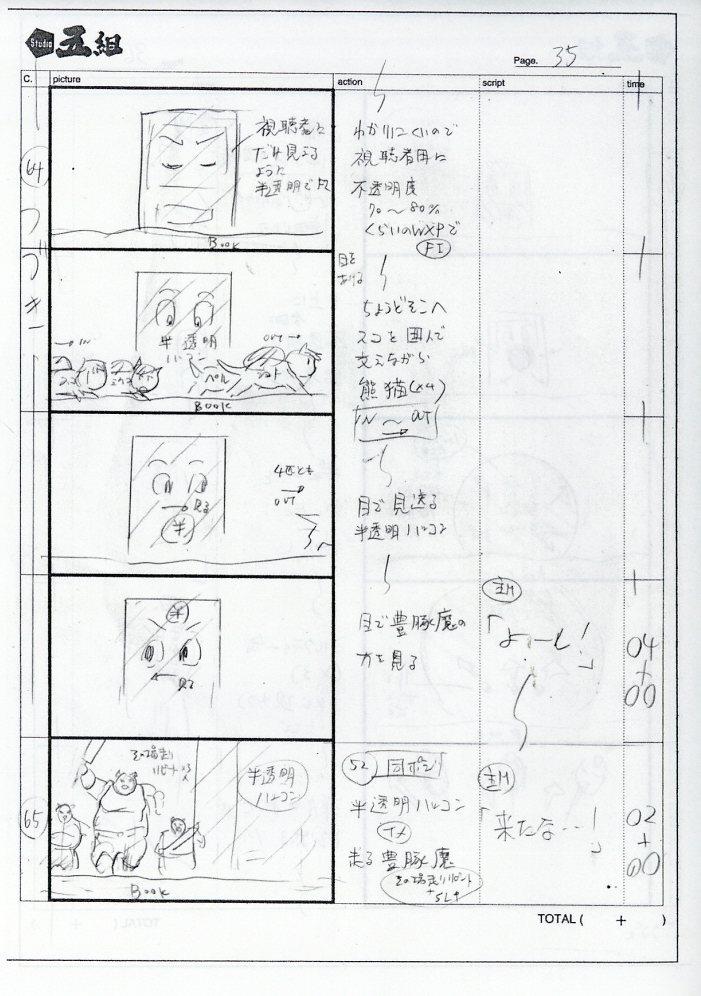 Studio 五組
Page. 35
C. picture action script time
64
つづき
視聴者に
だけ見える
ように
半透明で
Book
わかりにくいので
視聴者用に
不透明度
70～80%
くらいのWXPで
FI
目を
あける
半透明
ハルコン
IN
OUT
ペル
Book
ちょうどそこへ
スコを囲んで
支えながら
熊猫(×4)
IN ～ OUT
4匹とも
OUT
見る
半
目で見送る
半透明ハルコン
半
見る
目で豊豚魔の
方を見る
主M
「よーし!」
04
+
00
65
その場走り
リピート×3人
半透明
ハルコン
Book
52 同ポジ
半透明ハルコン
ナメ
走る豊豚魔
その場走りリピート
+
SL
主M
「来たな…!」
02
+
00
TOTAL ( + )